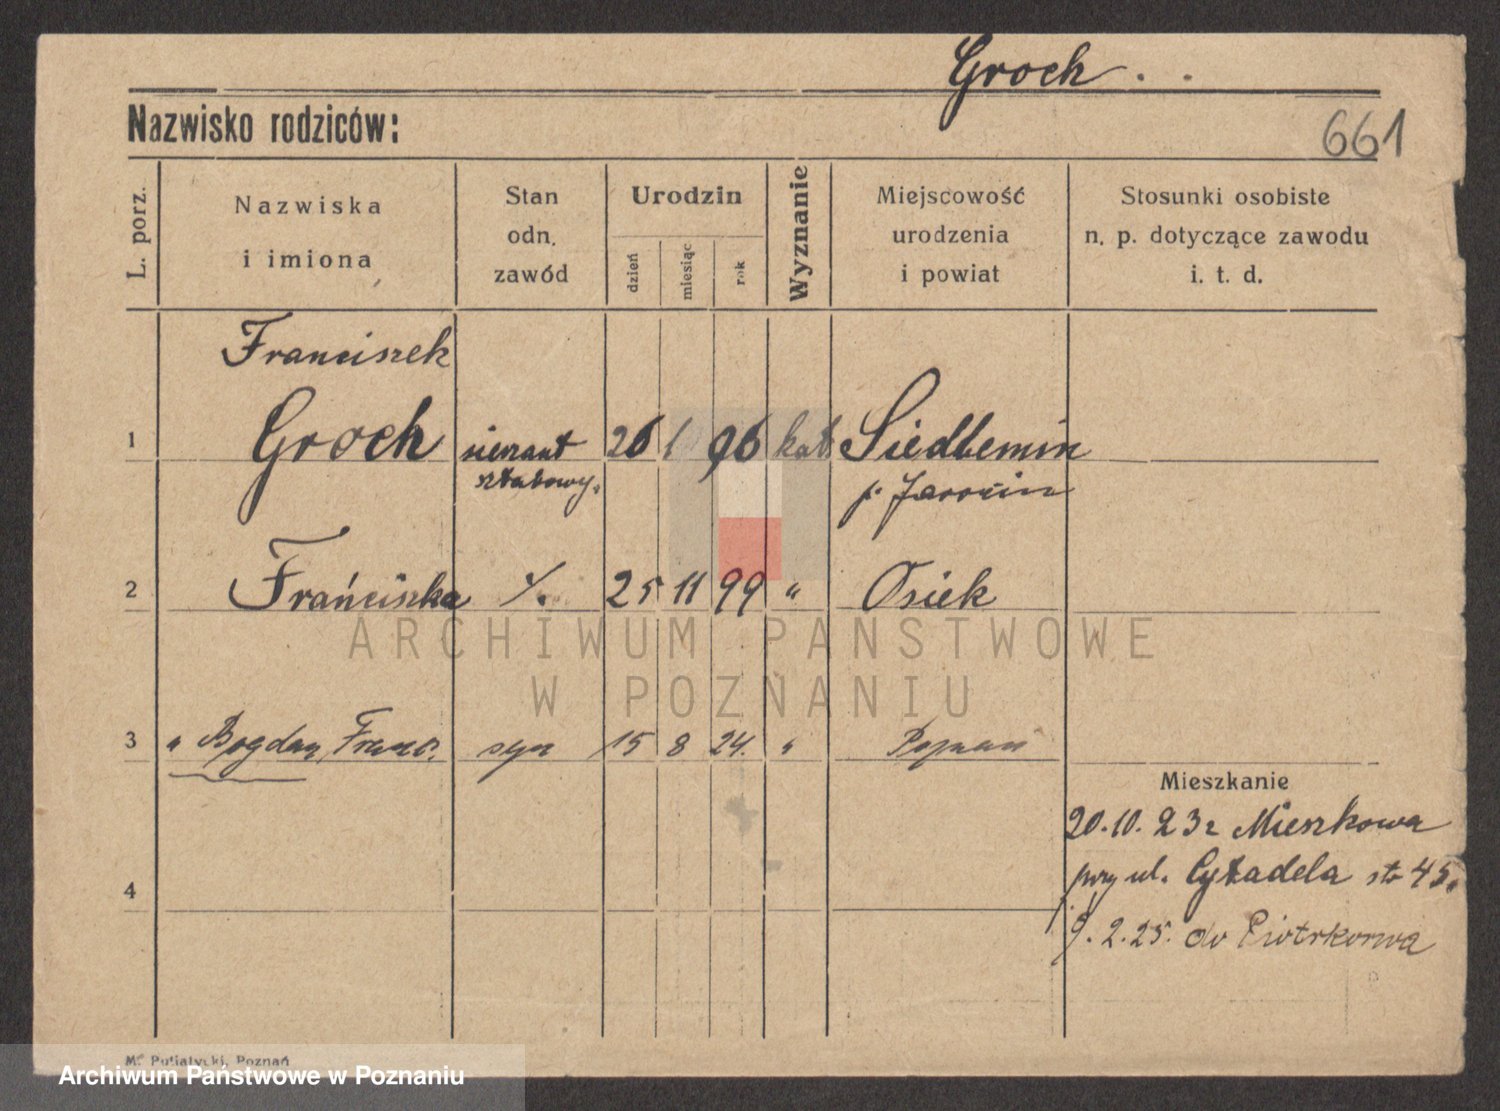 Groch . .
Nazwisko rodziców:
661
L. porz.
Nazwiska
i imiona
Stan
odn.
zawód
Urodzin
dzień
miesiąc
rok
Wyznanie
Miejscowość
urodzenia
i powiat
Stosunki osobiste
n. p. dotyczące zawodu
i. t. d.
Franciszek
1 Groch sierżant 26 1 96 kat Siedlemin
sztabowy. p. Jarocin
2 Franciszka ./. 25 11 99 " Osiek
ARCHIWUM PAŃSTWOWE
W POZNANIU
3 " Bogdan Franc. syn 15 8 24. " Poznań
Mieszkanie
20.10.23 r Mieszkowa
przy ul. Cytadela sto 45.
4
9.2.25. do Piotrkowa
M. Putiatycki, Poznań
Archiwum Państwowe w Poznaniu